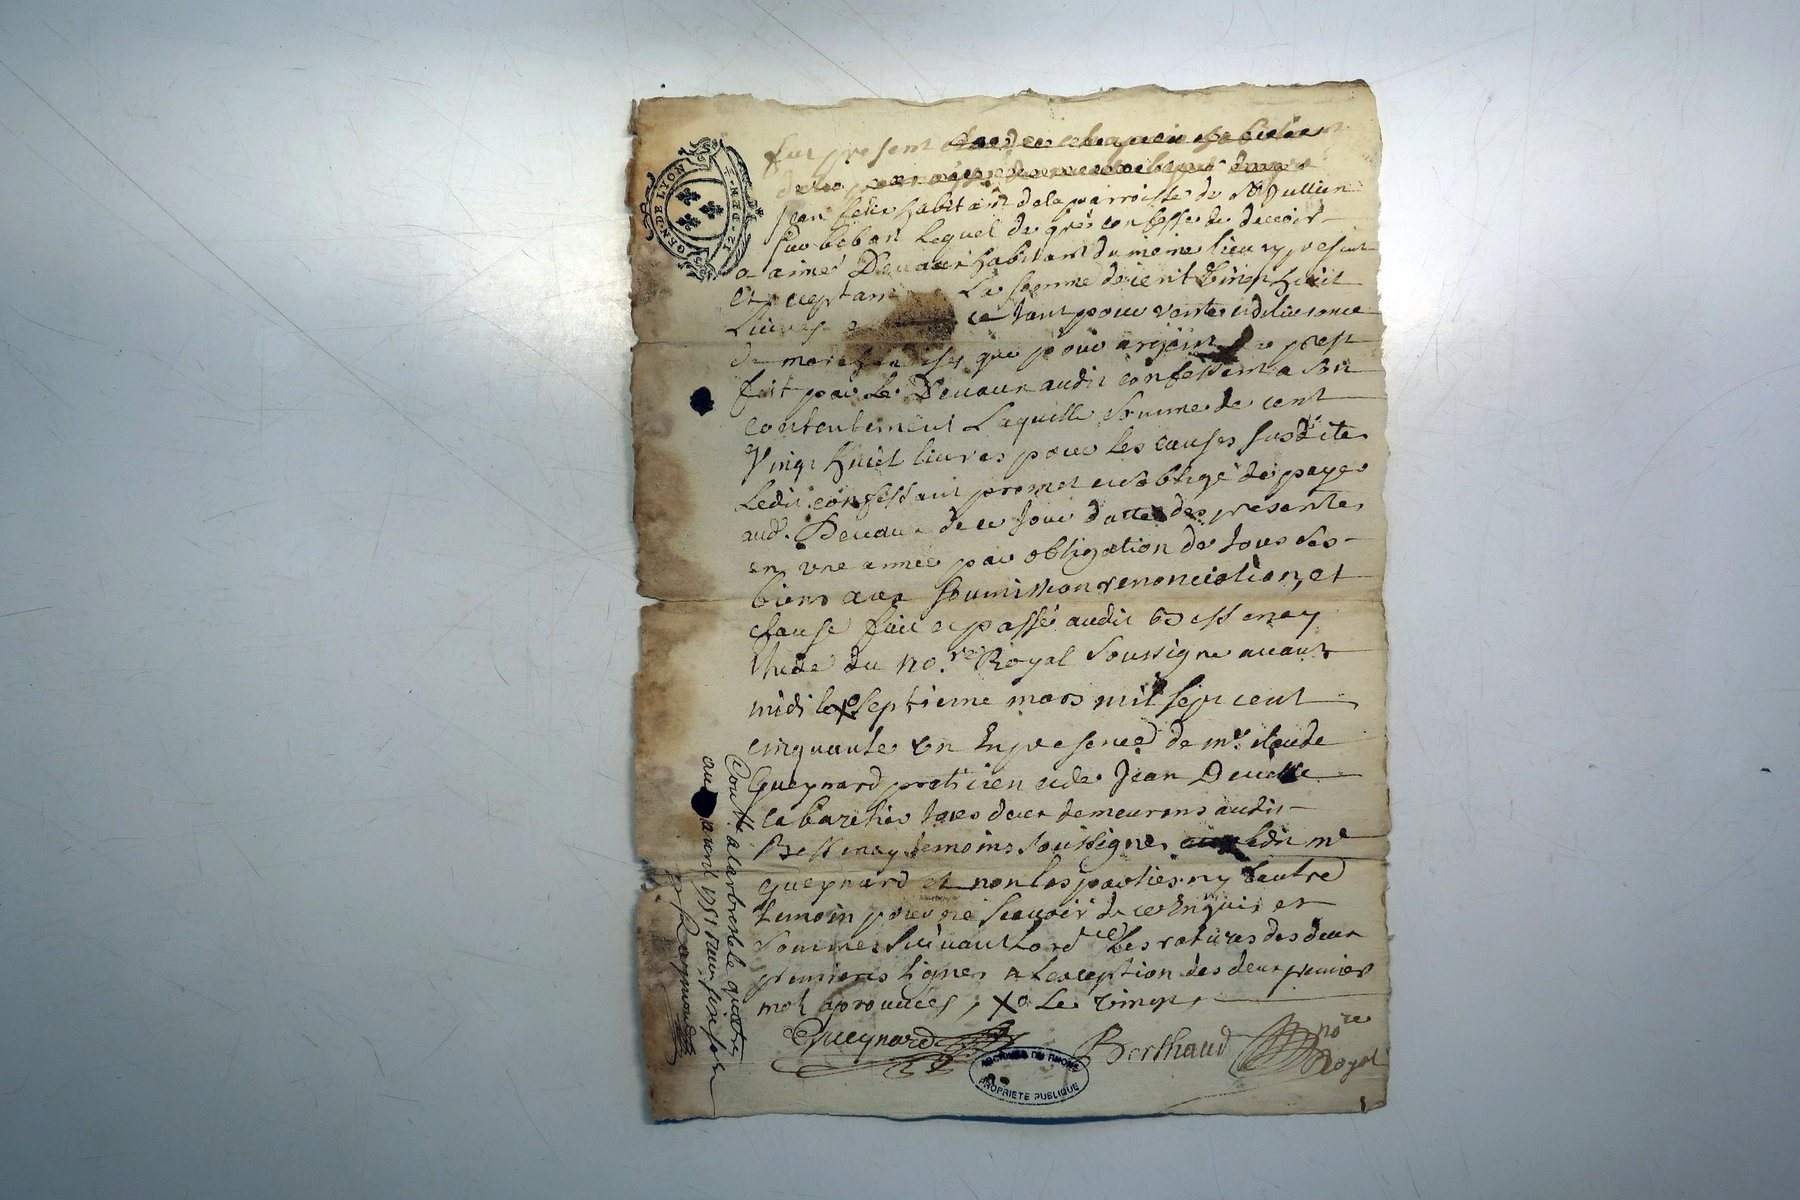 GEN·DE LYON
12·DEN·T
fut present
Jean felix habitant de la parroisse de St Jullien
sur bibost lequel de gré confesse devoir
a aimé Devaux habitant du meme lieu cy present
et aceptant la somme de cent vingt huit
livres ce tant pour vante et delivrance
de marchandises que pour argent de prest
fait par le Devaux audit confessant a son
contentement laquelle somme de cent
vingt huict livres pour les causes susdites
ledit confessant promet et s'oblige de payer
aud. Devaux de ce jour datte des presentes
en une année par obligation de tous ses
biens avec soumission renonciation, et
clause fait et passé audit Bessenay
étude du no.re Royal soussigne avant
midi le x septieme mars mil sept cent
cinquante un en presence de mr. claude
Gueynard praticien et de Jean Deville
cabaretier tous deux demeurans audit
Bessenay temoins soussignes ledit mr
Gueynard et non les parties ny l'autre
temoin pour ne scavoir de ce enquis et
sommes suivant l'ord.ce les ratures des deux
premieres lignes a l'exception des deux premier
mot aprouvées, x le vingt,
Gueynard Berthaud no.re
Royal
Conttr. a larbresle le quatre
avril 1751 recu
Raymond
ARCHIVES DU RHONE
PROPRIETE PUBLIQUE